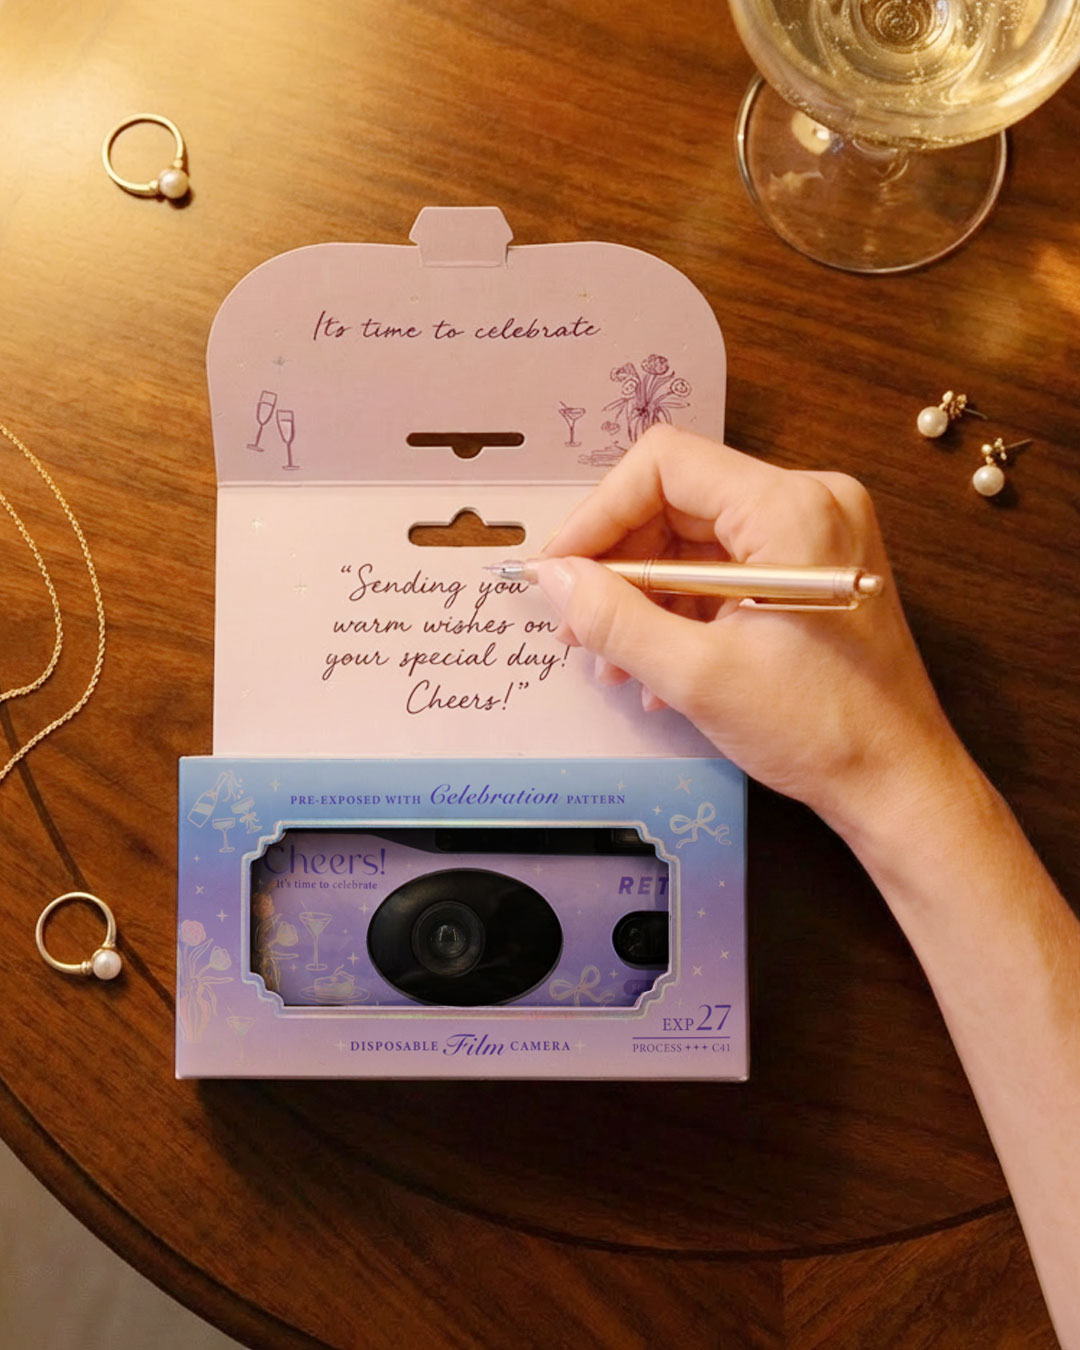 Its time to celebrate
“Sending you
warm wishes on
your special day!
Cheers!”
PRE-EXPOSED WITH Celebration PATTERN
Cheers!
It's time to celebrate
RET
DISPOSABLE Film CAMERA
EXP 27
PROCESS +++ C41